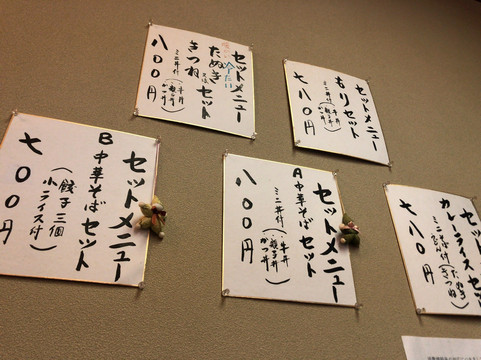 セットメニュー
冷たい
たぬき
又は セット
きつね
ミニ丼付
・牛丼
・親子丼
・かつ丼
八〇〇円
セットメニュー
もりセット
ミニ丼付
・牛丼
・親子丼
・かつ丼
七八〇円
セットメニュー
B 中華そばセット
(餃子三個
小ライス付)
七〇〇円
セットメニュー
A 中華そばセット
ミニ丼付
・牛丼
・親子丼
・かつ丼
八〇〇円
セット
カレーライスセッ
ミニそば付
たぬき
きつね
七八〇円